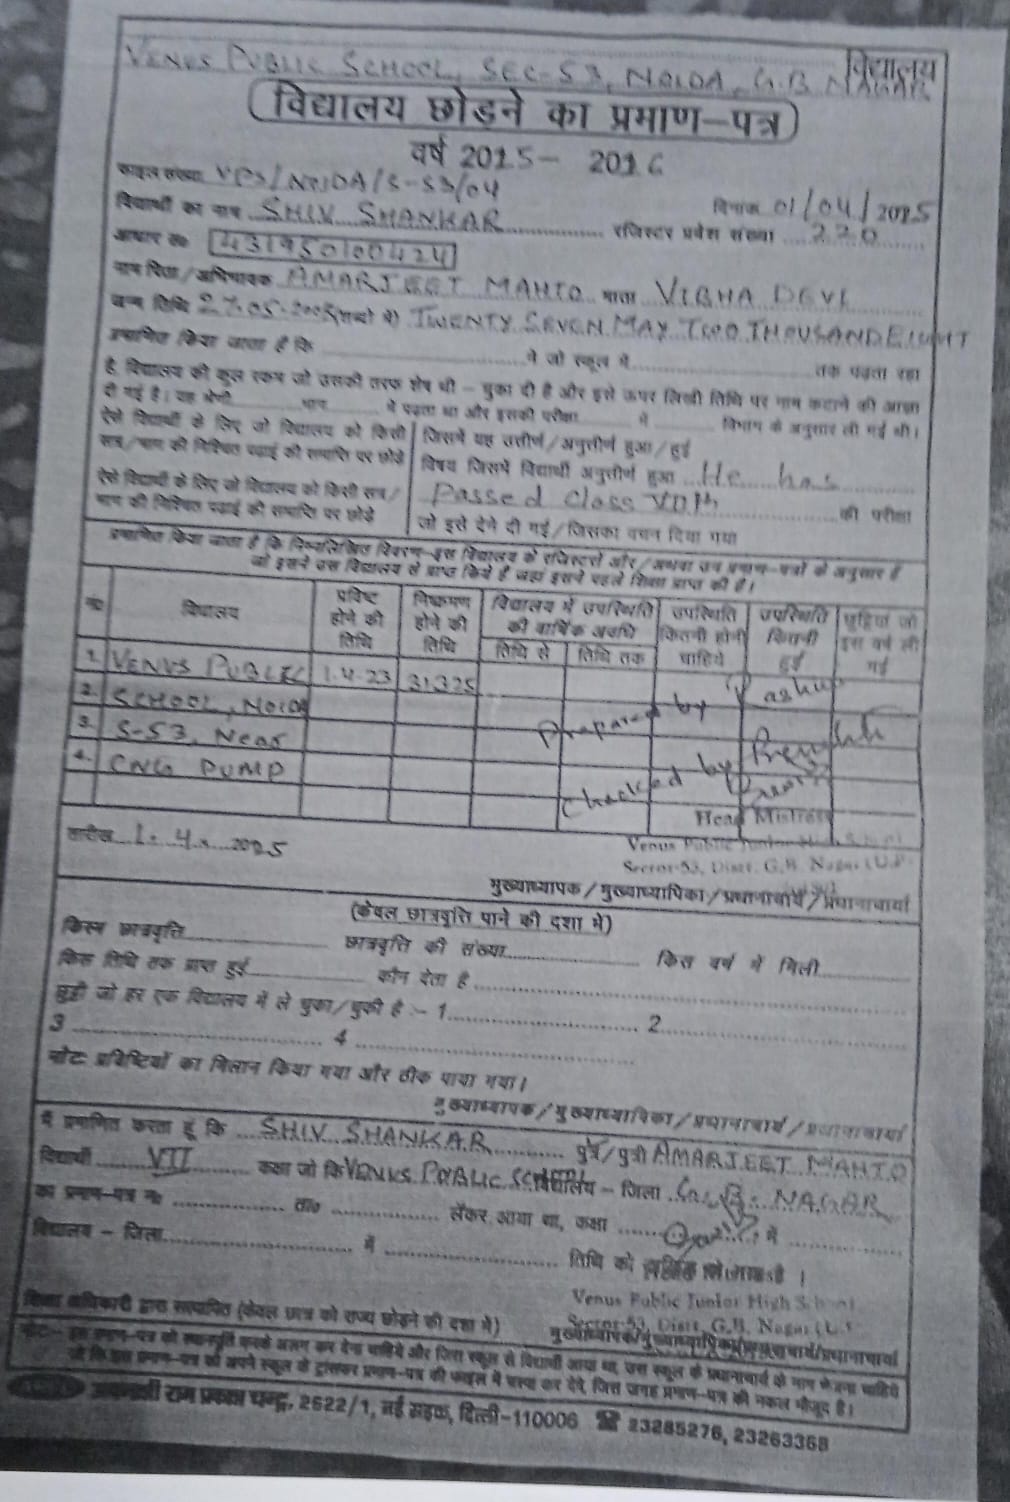 VENUS PUBLIC SCHOOL, SEC-53, NOIDA, G.B. NAGAR विद्यालय
विद्यालय छोड़ने का प्रमाण-पत्र
वर्ष 2025- 2026
फाइल संख्या VPS/NOIDA/S-53/04
दिनांक 01/04/2025
विद्यार्थी का नाम SHIV SHANKAR रजिस्टर प्रवेश संख्या 220
आधार सं० 431950100424
नाम पिता/अभिभावक AMARJEET MAHTO माता VIBHA DEVI
जन्म तिथि (शब्दों में) TWENTY SEVEN MAY TWO THOUSAND EIGHT
प्रमाणित किया जाता है कि ने जो स्कूल में तक पढ़ता रहा
है, विद्यालय की कुल रकम जो उसकी तरफ शेष थी - चुका दी है और इसे ऊपर लिखी तिथि पर नाम कटाने की आज्ञा
दी गई है। यह श्रेणी भाग में पढ़ता था और इसकी परीक्षा में विभाग के अनुसार ली गई थी।
ऐसे विद्यार्थी के लिए जो विद्यालय को किसी जिसमें यह उत्तीर्ण/अनुत्तीर्ण हुआ/हुई
सत्र/भाग की निश्चित पढ़ाई की समाप्ति पर छोड़े विषय जिसमें विद्यार्थी अनुत्तीर्ण हुआ He has
ऐसे विद्यार्थी के लिए जो विद्यालय को किसी सत्र/ Passed class की परीक्षा
भाग की निश्चित पढ़ाई की समाप्ति पर छोड़े जो इसे देने दी गई/जिसका वचन दिया गया
प्रमाणित किया जाता है कि निम्नलिखित विवरण-इस विद्यालय के रजिस्टरों और/अथवा उन प्रमाण-पत्रों के अनुसार है
जो इसने उस विद्यालय से प्राप्त किये हैं जहां इसने पहले शिक्षा प्राप्त की है।
विद्यालय प्रविष्ट होने की तिथि निष्क्रमण होने की तिथि विद्यालय में उपस्थिति की वार्षिक अवधि उपस्थिति कितनी होनी चाहिये उपस्थिति कितनी हुई छुट्टियां जो इस वर्ष ली गई
तिथि से तिथि तक
1. VENUS PUBLIC 1.4.23 31.3.25
2. SCHOOL, NOIDA
3. S-53, Near
4. CNG PUMP
Prepared by
Checked by
Head Mistress
तारीख 1.4.2025
Venus Public Junior High School
Sector-53, Distt. G.B. Nagar (U.P.
मुख्याध्यापक/मुख्याध्यापिका/प्रधानाचार्य/प्रधानाचार्या
(केवल छात्रवृत्ति पाने की दशा में)
किस्म छात्रवृत्ति छात्रवृत्ति की संख्या किस वर्ष में मिली
किस तिथि तक प्राप्त हुई कौन देता है
छुट्टी जो हर एक विद्यालय में ले चुका/चुकी है :- 1 2
3 4
नोट: प्रविष्टियों का मिलान किया गया और ठीक पाया गया।
मुख्याध्यापक/मुख्याध्यापिका/प्रधानाचार्य/प्रधानाचार्या
मैं प्रमाणित करता हूं कि SHIV SHANKAR पुत्र/पुत्री AMARJEET MAHTO
विद्यार्थी VII कक्षा जो कि VENUS PUBLIC SCHOOL विद्यालय - जिला G.B. NAGAR
का प्रमाण-पत्र नं० ता० लेकर आया था, कक्षा में
विद्यालय - जिला में तिथि को
Venus Public Junior High School
Sector-53, Distt. G.B. Nagar (U.P
शिक्षा अधिकारी द्वारा सत्यापित (केवल छात्र को राज्य छोड़ने की दशा में) मुख्याध्यापक/मुख्याध्यापिका/प्रधानाचार्य/प्रधानाचार्या
नोट:- इस प्रमाण-पत्र को करके अलग कर देना चाहिये और जिस स्कूल से विद्यार्थी आया था, उस स्कूल के प्रधानाचार्य के नाम भेजना चाहिये
जो कि इस प्रमाण-पत्र को अपने स्कूल के ट्रांसफर प्रमाण-पत्र की फाइल में चस्पा कर देवे, जिस जगह प्रमाण-पत्र की नकल मौजूद है।
राम प्रकाश चन्द्र, 2622/1, नई सड़क, दिल्ली-110006 ☎ 23285276, 23263368